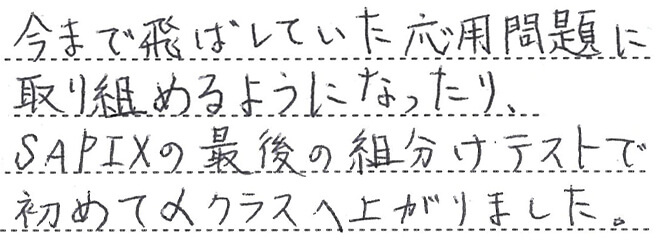 今まで飛ばしていた応用問題に
取り組めるようになったり、
SAPIXの最後の組分けテストで
初めてαクラスへ上がりました。